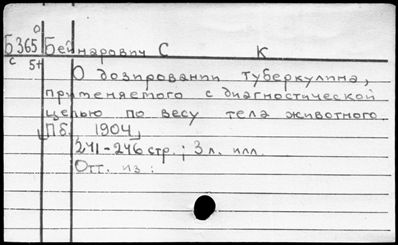 0
Б365 Бейнарович С К
с 5+
О дозировании туберкулина,
применяемого с диагностической
целью по весу тела животного
[Пб. 1904]
241-246 стр.; 3 л. илл.
Отт. из: